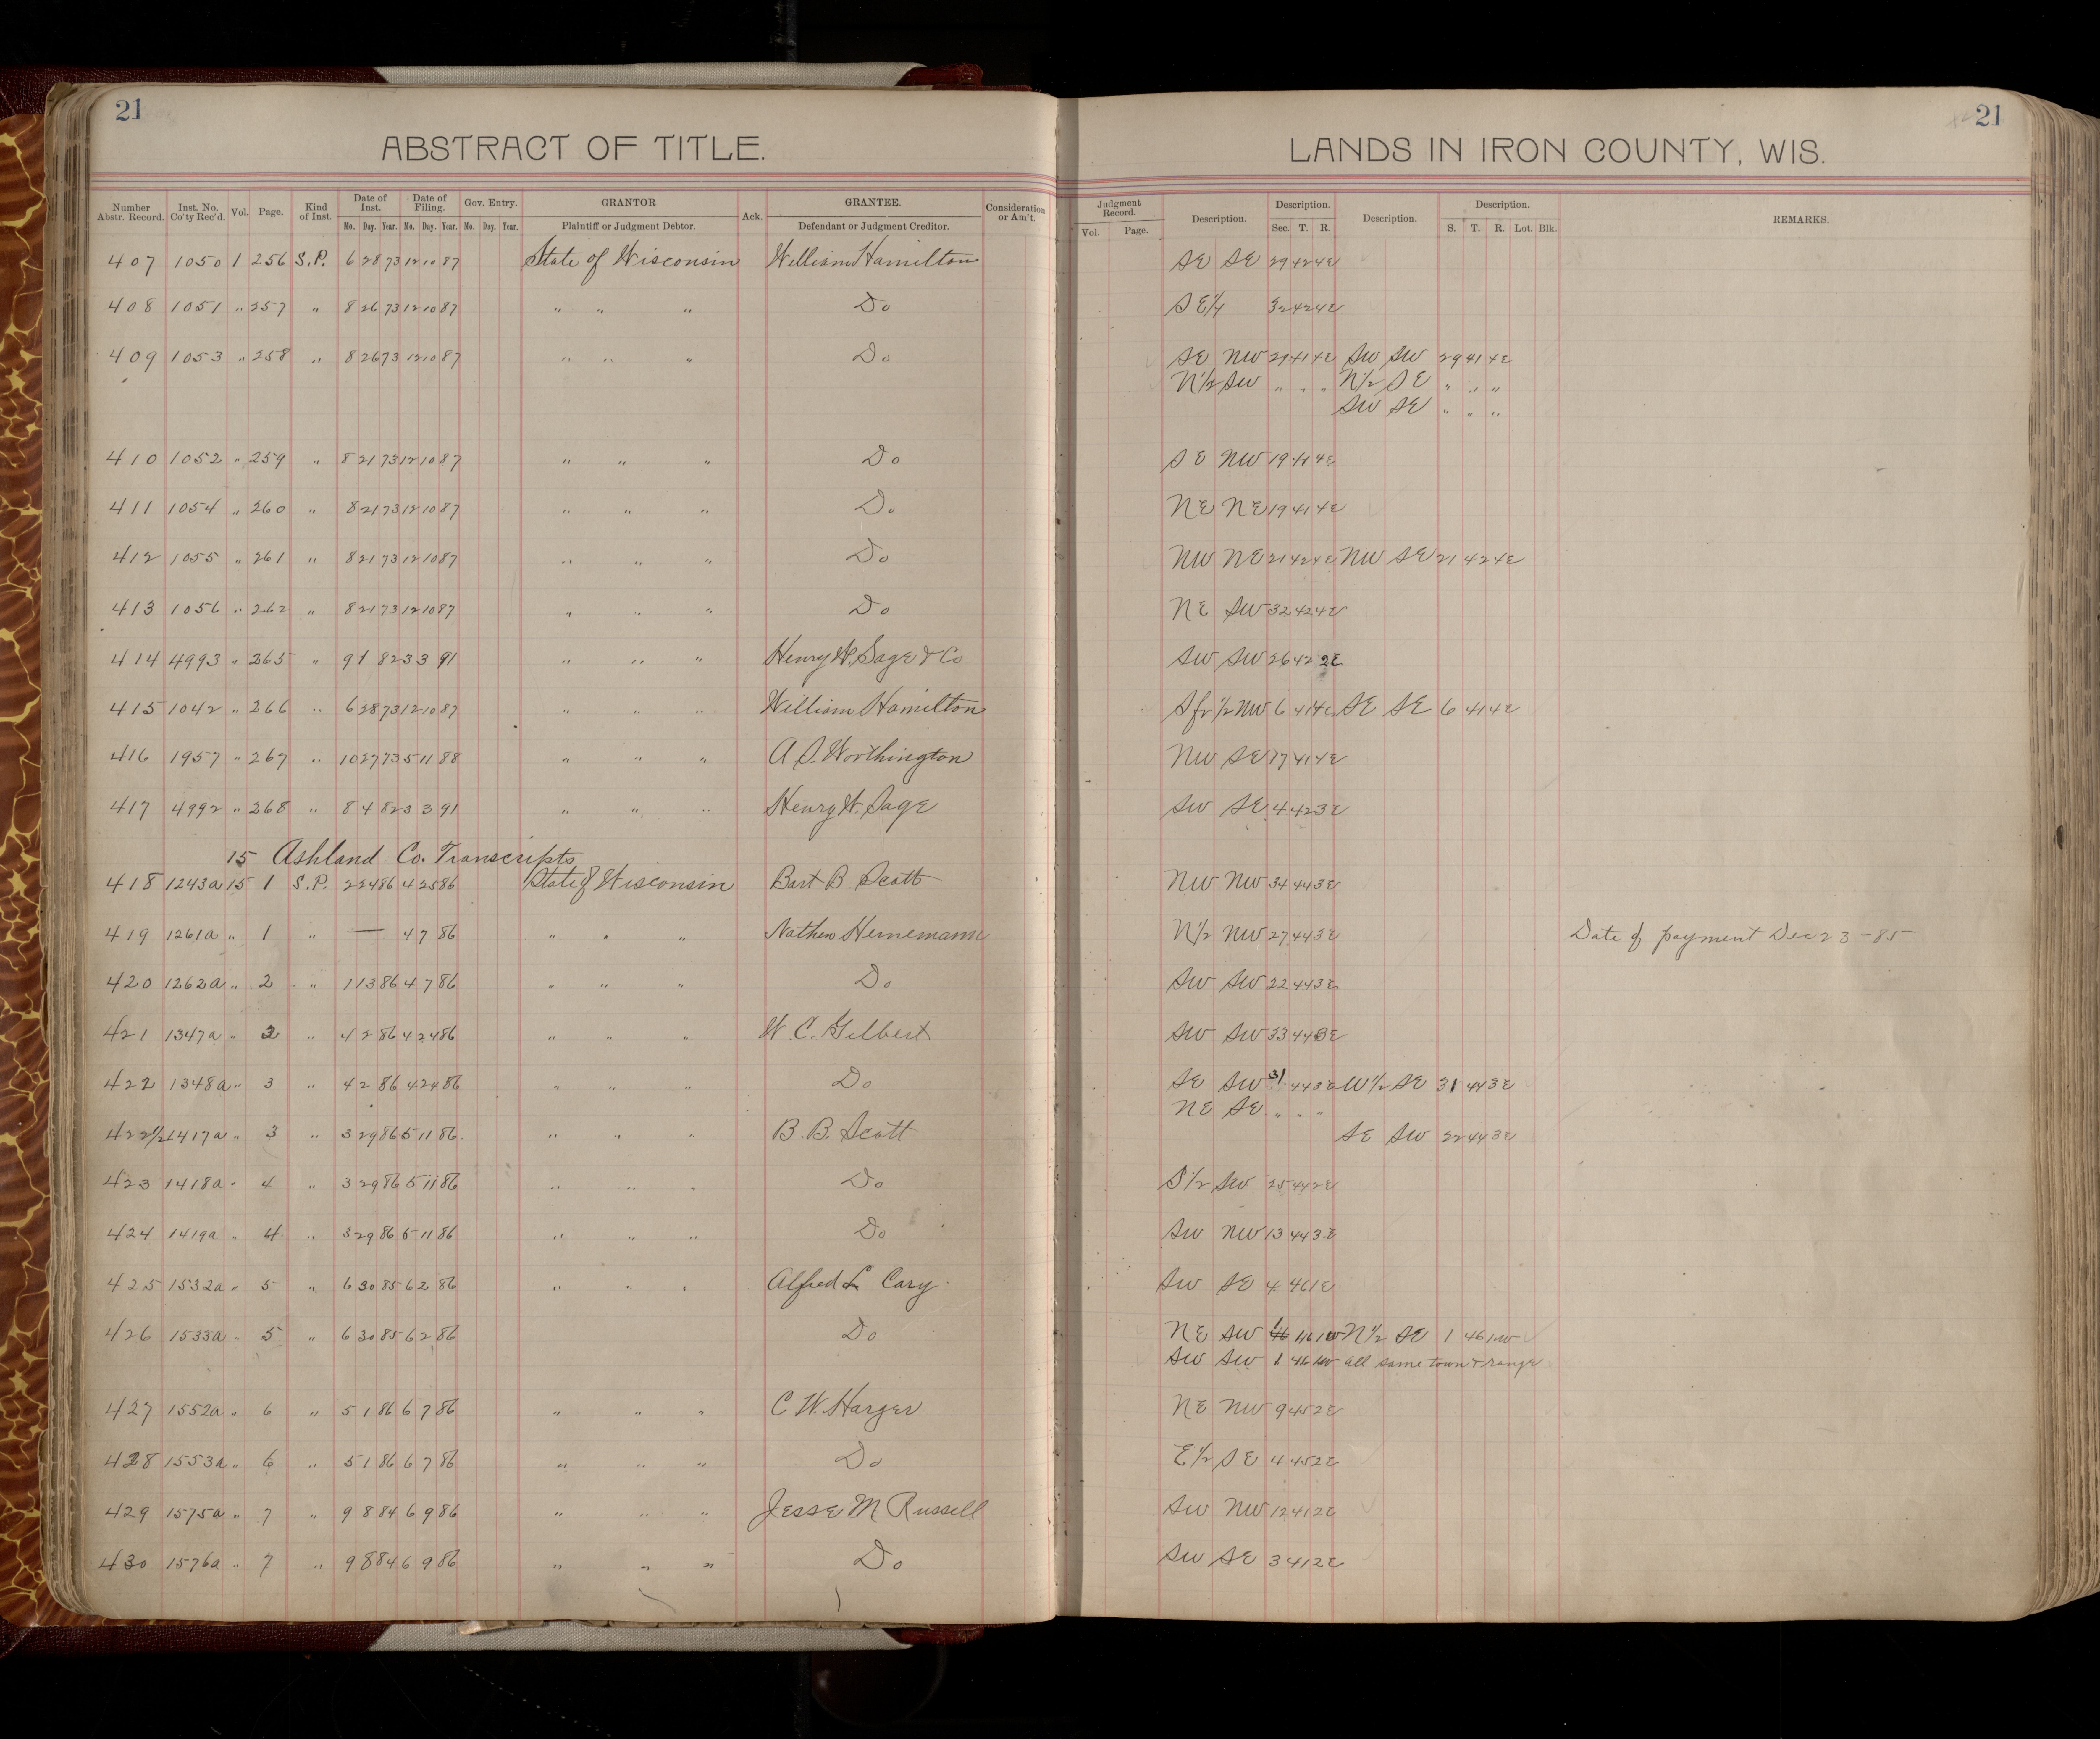 21
21
ABSTRACT OF TITLE.
LANDS IN IRON COUNTY, WIS.
Number Abstr. Record. Inst. No. Co'ty Rec'd. Vol. Page. Kind of Inst. Date of Inst. Date of Filing. Gov. Entry. GRANTOR Ack. GRANTEE. Consideration or Am't. Judgment Record. Description. Description. Description. Description. REMARKS.
Mo. Day. Year. Mo. Day. Year. Mo. Day. Year. Plaintiff or Judgment Debtor. Defendant or Judgment Creditor. Vol. Page. Sec. T. R. S. T. R. Lot. Blk.
407 1050 1 256 S.P. 6 28 73 12 10 87 State of Wisconsin William Hamilton SE SE 29 42 4E
408 1051 " 257 " 8 26 73 12 10 87 " " " Do SE 1/4 32 42 4E
409 1053 " 258 " 8 26 73 12 10 87 " " " Do SE NW 29 41 4E SW SW 29 41 4E
N 1/2 SW " " " N 1/2 SE " " "
SW SE " " "
410 1052 " 259 " 8 21 73 12 10 87 " " " Do SE NW 19 41 4E
411 1054 " 260 " 8 21 73 12 10 87 " " " Do NE NE 19 41 4E
412 1055 " 261 " 8 21 73 12 10 87 " " " Do NW NE 21 42 4E NW SE 21 42 4E
413 1056 " 262 " 8 21 73 12 10 87 " " " Do NE SW 32 42 4E
414 4993 " 265 " 9 1 82 3 3 91 " " " Henry W. Sage & Co SW SW 26 42 2E
415 1042 " 266 " 6 28 73 12 10 87 " " " William Hamilton S fr 1/2 NW 6 41 4E SE SE 6 41 4E
416 1957 " 267 " 10 27 73 5 11 88 " " " A S. Worthington NW SE 17 41 4E
417 4992 " 268 " 8 4 82 3 3 91 " " " Henry W. Sage SW SE 4 42 3E
15 Ashland Co. Transcripts
418 1243a 15 1 S.P. 2 24 86 4 25 86 State of Wisconsin Bart B. Scott NW NW 34 44 3E
419 1261a " 1 " — 4 7 86 " " " Nathen Hernemann N 1/2 NW 27 44 3E Date of payment Dec 23 - 85
420 1262a " 2 " 1 13 86 4 7 86 " " " Do SW SW 22 44 3E
421 1347a " 3 " 4 2 86 4 24 86 " " " W. C. Gilbert SW SW 33 44 3E
422 1348a " 3 " 4 2 86 4 24 86 " " " Do SE SW 31 44 3E W 1/2 SE 31 44 3E
NE SE " " "
422 1/2 1417a " 3 " 3 29 86 5 11 86 " " " B. B. Scott SE SW 22 44 3E
423 1418a " 4 " 3 29 86 5 11 86 " " " Do S 1/2 SW 25 44 2E
424 1419a " 4 " 3 29 86 5 11 86 " " " Do SW NW 13 44 3E
425 1532a " 5 " 6 30 85 6 2 86 " " " Alfred L Cary SW SE 4 46 1E
426 1533a " 5 " 6 30 85 6 2 86 Do NE SW 1 46 1W N 1/2 SE 1 46 1W
SW SW 1 46 1W all same town & range
427 1552a " 6 " 5 1 86 6 7 86 " " " C W. Harger NE NW 9 45 2E
428 1553a " 6 " 5 1 86 6 7 86 " " " Do E 1/2 SE 4 45 2E
429 1575a " 7 " 9 8 84 6 9 86 " " " Jesse M Russell SW NW 12 41 2E
430 1576a " 7 " 9 8 84 6 9 86 " " " Do SW SE 3 41 2E